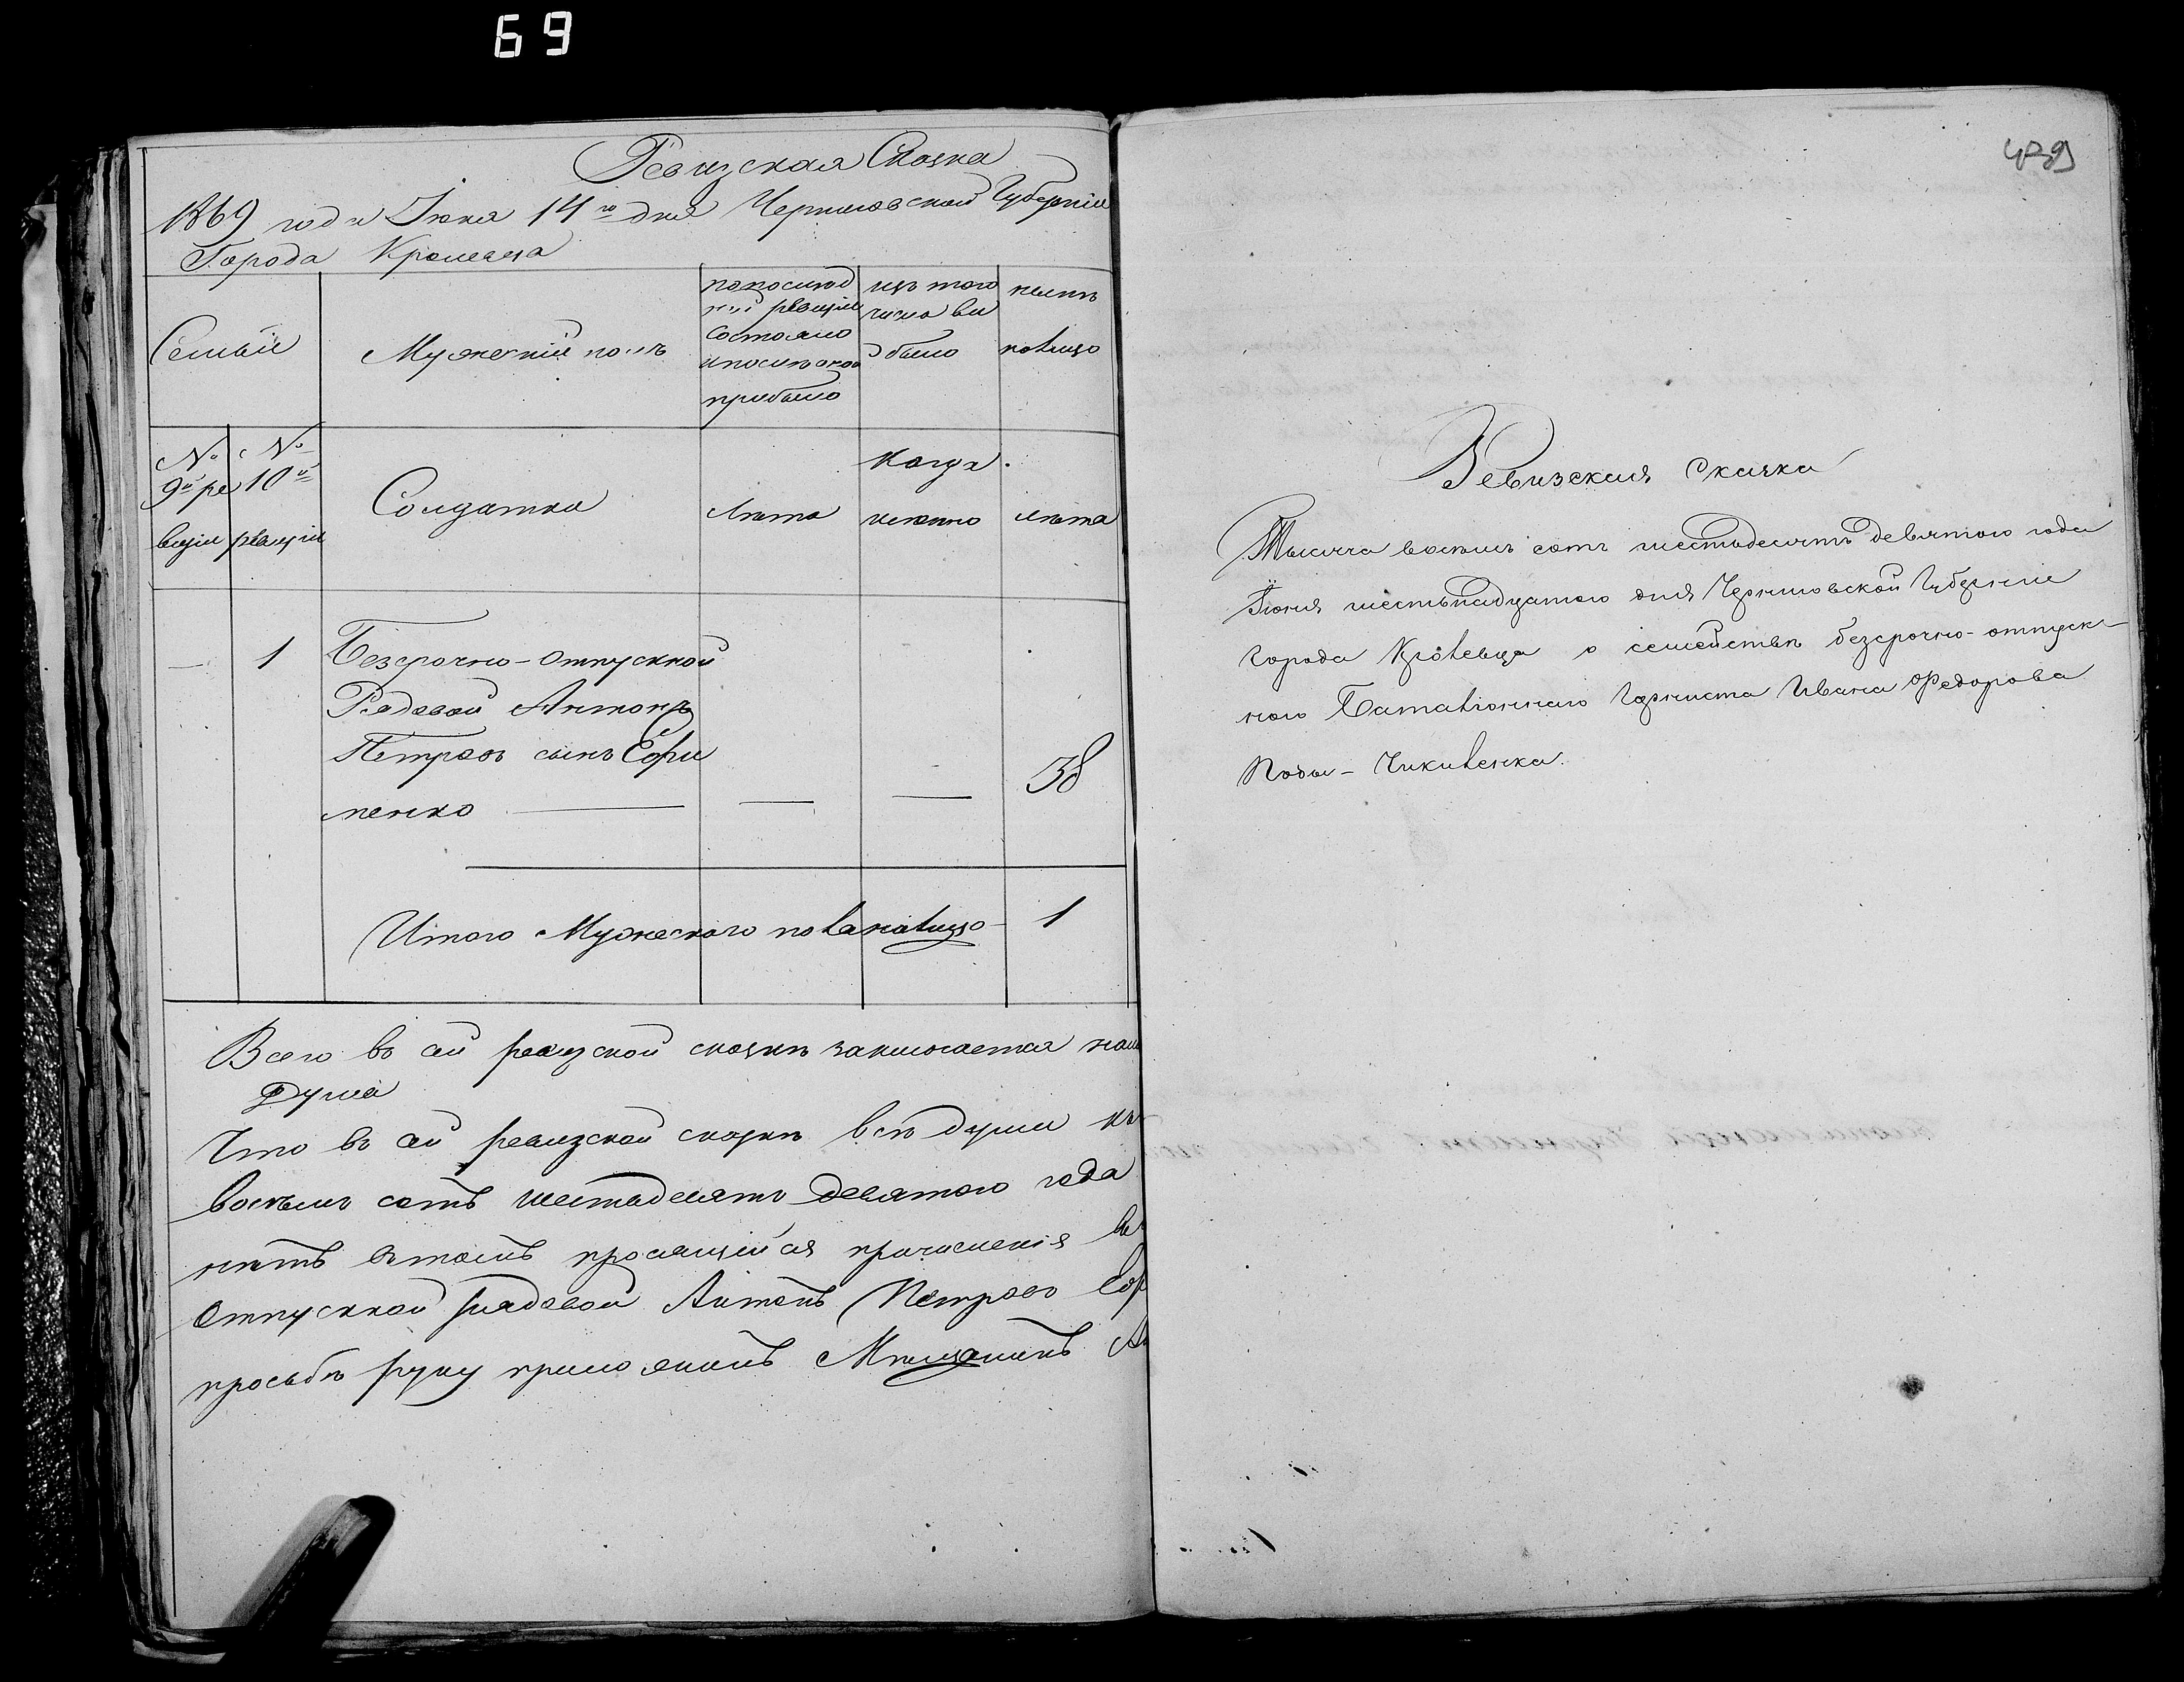 69
Ревизская Сказка
1869 года Июня 14го дня Черниговской Губерніи
Города Кролевца
Семьи
Мужескій полъ
по послѣд
ней ревизіи
состояло
и послѣ оной
прибыло
изъ того
числа вы
было
нынѣ
налицо
№ 9й ре
визіи
№ 10й
ревизіи
Солдатки
Лѣта
Когда
именно
лѣта
— 1 Безсрочно-отпускной
Рядовой Антонъ
Петровъ сынъ Ефи
менко — — — 38
Итого Мужескаго пола налицо 1
Всего въ сей ревизской сказкѣ заключается
Душа
Что въ сей ревизской сказкѣ всѣ души
восемь сотъ шестьдесятъ девятого года
нѣтъ въ томъ просящійся причисленія
Отпускной рядовой Антонъ Петровъ Еф
просьбѣ руку приложилъ Мѣщанинъ
439
Ревизская сказка
Тысяча восемь сотъ шестьдесятъ девятого года
Июня шестьнадцатого дня Черниговской Губерніи
города Кролевца о семействѣ безсрочно-отпуск-
ного Баталіоннаго Горниста Ивана Федорова
Коды-Чикиленка.